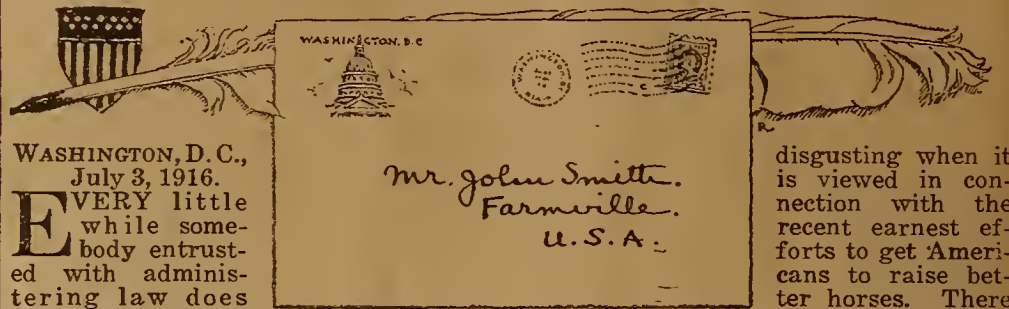 WASHINGTON, D.C
WASHINGTON, D.C.,
July 3, 1916.
EVERY little
while some-
body entrust-
ed with adminis-
tering law does
Mr. John Smith.
Farmville.
U.S.A.
disgusting when it
is viewed in con-
nection with the
recent earnest ef-
forts to get Ameri-
cans to raise bet-
ter horses. There